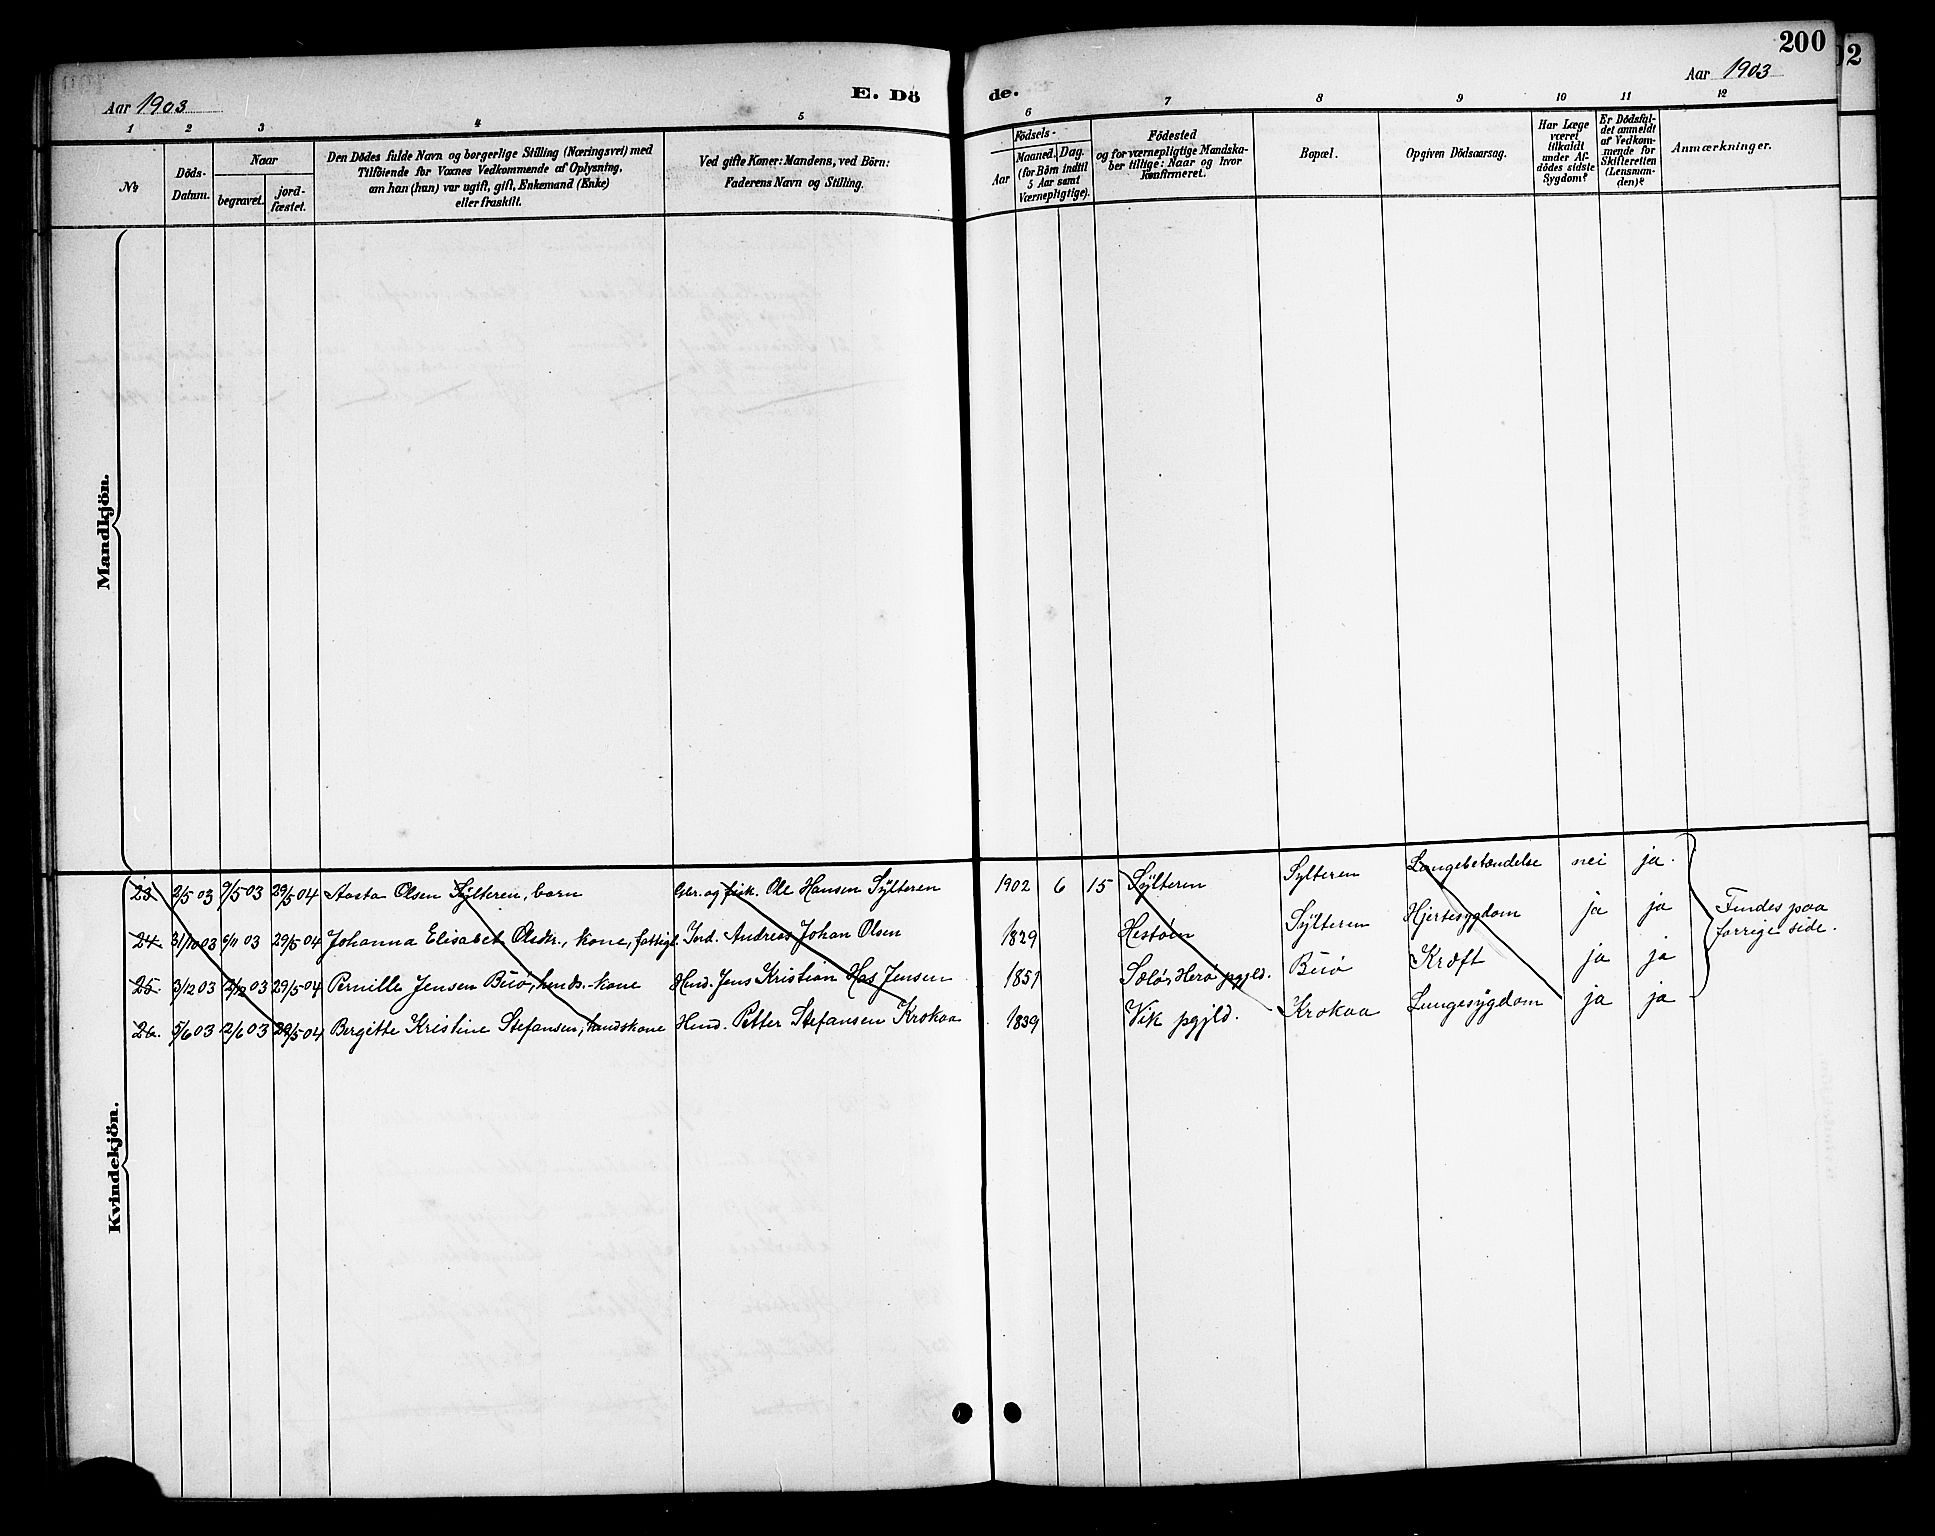 200
02
Aar 1903
E. Dö
de.
Aar 1903
1 2 3 4 5 6 7 8 9 10 11 12
No
Döds-
Datum.
Naar
begravet.
jord-
fæstet.
Den Dödes fulde Navn og borgerlige Stilling (Næringsvei) med
Tilföiende for Voxnes Vedkommende af Oplysning,
om han (hun) var ugift, gift, Enkemand (Enke)
eller fraskilt.
Ved gifte Koner: Mandens, ved Börn:
Faderens Navn og Stilling.
Födsels-
Aar
Maaned. Dag.
(for Börn indtil
5 Aar samt
Værnepligtige).
Födested
og for værnepligtige Mandska-
ber tillige: Naar og hvor
konfirmeret.
Bopæl.
Opgiven Dödsaarsag.
Har Læge
været
tilkaldt
under Af-
dödes sidste
Sygdom?
Er Dödsfal-
det anmeldt
af Vedkom-
mende for
Skifteretten
(Lensman-
den)?
Anmærkninger.
Mandkjön.
Kvindekjön.
23 2/5 03 9/5 03 29/5 04 Aasta Olsen Sylteren, barn Gbr. og fisk. Ole Hansen Sylteren 1902 6 15 Sylteren Sylteren Lungebetændelse nei ja.
24. 31/10 03 6/11 03 29/5 04 Johanna Elisabet Olsdtr., kone, fattigl. Ind. Andreas Johan Olsen 1829 Hestøen Sylteren Hjertesygdom ja ja
25. 3/12 03 2/12 03 29/5 04 Pernille Jensen Burø, hmds.-kone Hmd. Jens Kristian Has Jensen 1851 Sølø, Herø pgjld. Burø Kræft ja ja
26. 5/6 03 2/6 03 29/5 04 Bergitte Kristine Stefansen, handskone Hmd. Petter Stefansen Krokaa 1839 Vik pgjld. Krokaa Lungesygdom ja ja
Findes paa
forrige side.